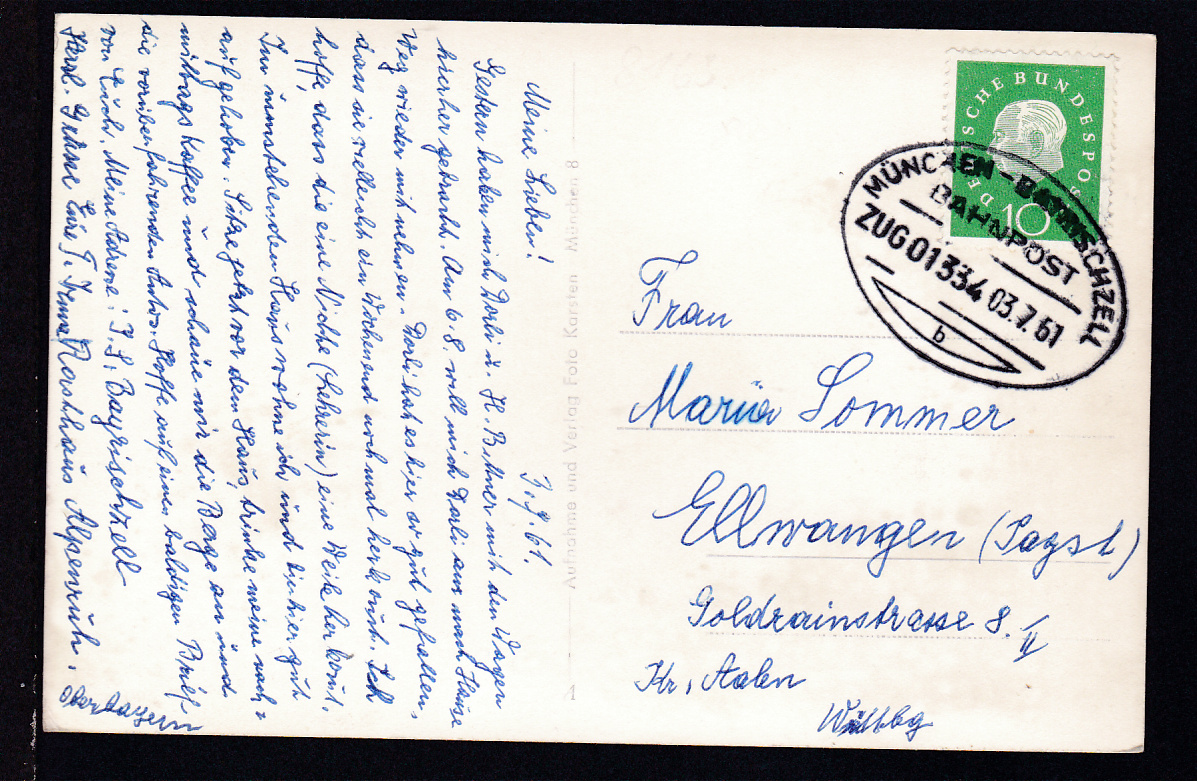 3.7.61.
Meine Lieben!
Gestern haben mich Dorli u. H. Bitner mit dem Wagen
hierher gebracht. Am 6.8. will mich Dorli am nach Hause
Weg wieder mitnehmen. Dorli hat es hier so gut gefallen,
dass sie vielleicht ein Wochenend nochmal herkommt. Ich
hoffe, dass die eine Nichte (Lehrerin) eine Weile her kommt.
Im umstehenden Haus wohne ich und bin hier gut
aufgehoben. Sitze jetzt vor dem Haus, trinke meine nach=
mittags Kaffee und schaue mir die Berge an und
die vorüberfahrenden Autos. Hoffe auf einen baldigen Brief
von Euch. Meine Adresse: I. S. Bayrischzell
Haus Alpenruh.
Oberbayern
Herzl. Grüsse Eure T. Irma
Aufnahme und Verlag Foto Karsten München 8
DEUTSCHE BUNDESPOST
10
MÜNCHEN - BAYRISCHZELL
BAHNPOST
ZUG 01334 03.7.61
b
Frau
Maria Sommer
Ellwangen (Jagst)
Goldrainstrasse 8. II
Kr. Aalen
Württbg